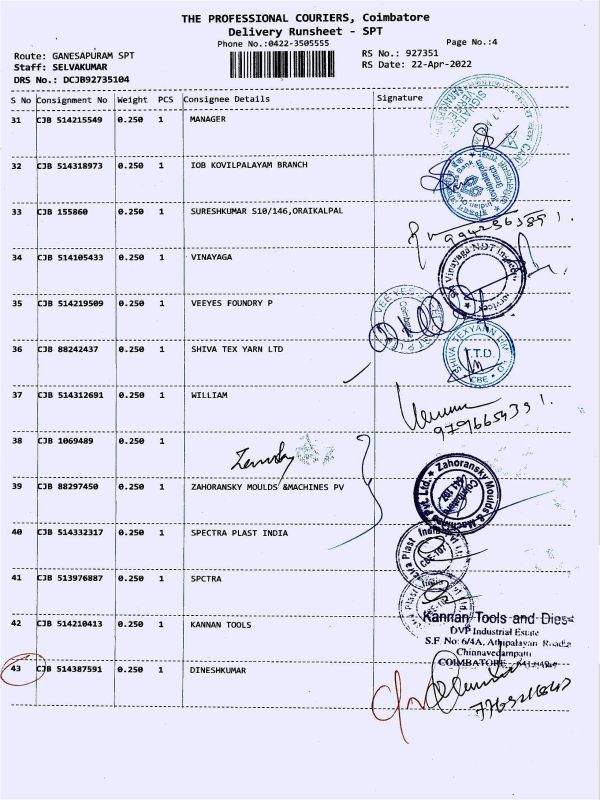 THE PROFESSIONAL COURIERS, Coimbatore
Delivery Runsheet - SPT
Phone No.:0422-3505555
Page No.:4
Route: GANESAPURAM SPT
RS No.: 927351
Staff: SELVAKUMAR
RS Date: 22-Apr-2022
DRS No.: DCJB92735104
S No Consignment No Weight PCS Consignee Details Signature
31 CJB 514215549 0.250 1 MANAGER
32 CJB 514318973 0.250 1 IOB KOVILPALAYAM BRANCH
33 CJB 155860 0.250 1 SURESHKUMAR S10/146,ORAIKALPAL
34 CJB 514105433 0.250 1 VINAYAGA
Vinayaga NDT
35 CJB 514219509 0.250 1 VEEYES FOUNDRY P
VEEYES
36 CJB 88242437 0.250 1 SHIVA TEX YARN LTD
SHIVA TEXYARN LIM
T.T.D.
CBE
37 CJB 514312691 0.250 1 WILLIAM
38 CJB 1069489 0.250 1
39 CJB 88297450 0.250 1 ZAHORANSKY MOULDS &MACHINES PV
Zahoransky Moulds & Machines Pvt. Ltd.
Coimbatore
641 107
40 CJB 514332317 0.250 1 SPECTRA PLAST INDIA
Plast India
CBE-107
41 CJB 513976887 0.250 1 SPCTRA
42 CJB 514210413 0.250 1 KANNAN TOOLS
Kannan Tools and Dies
DVP Industrial Estate
S.F. No: 6/4A, Athipalayan Road
Chinnavedampatti
COIMBATORE
43 CJB 514387591 0.250 1 DINESHKUMAR